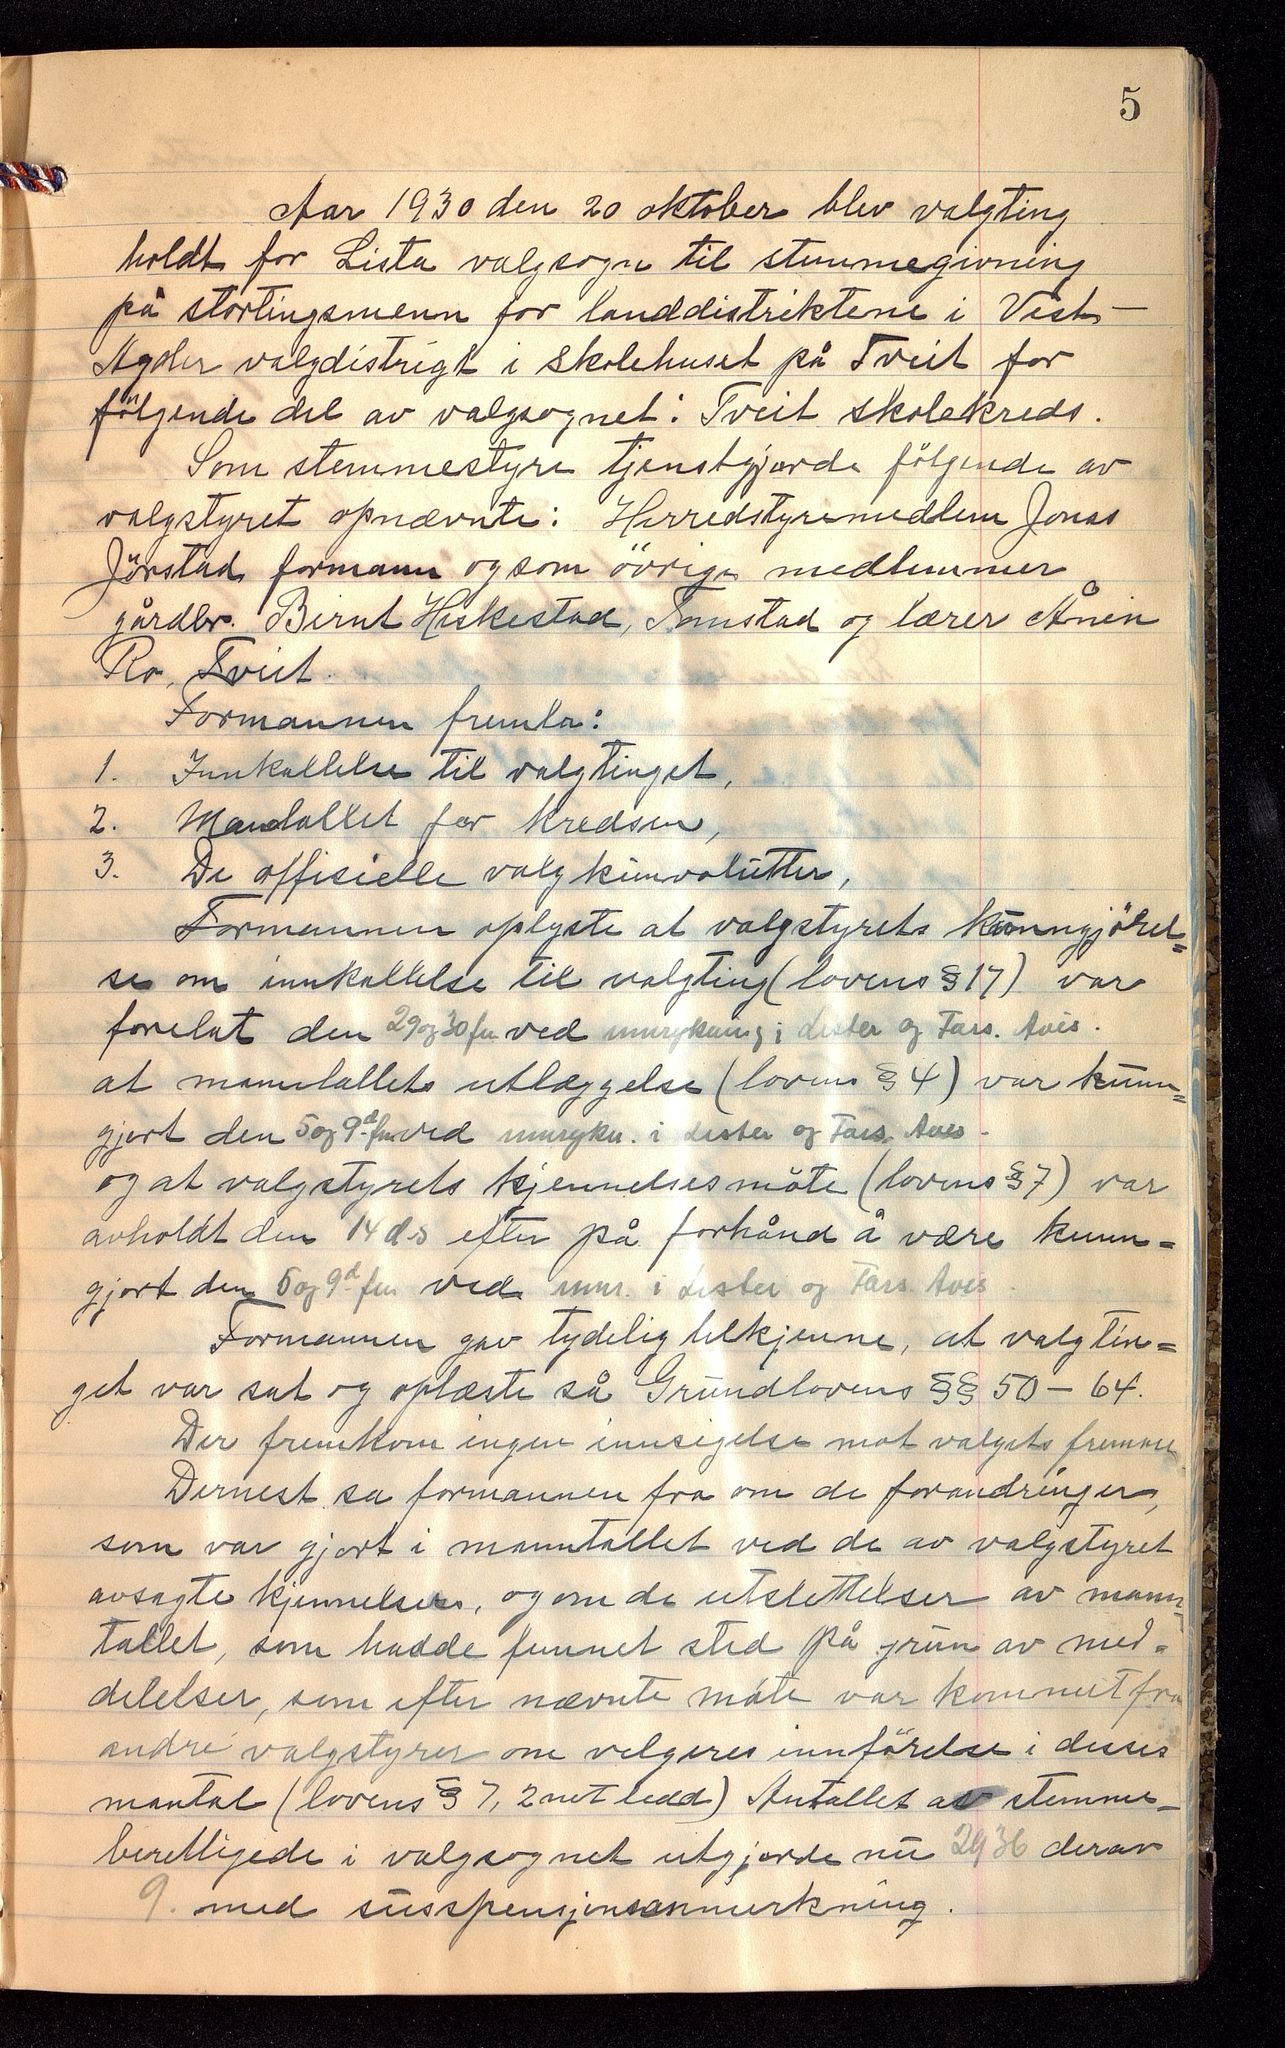 5
Aar 1930 den 20 oktober blev valgting
holdt for Lista valgsogn til stemmegivning
på stortingsmenn for landdistriktene i Vest-
Agder valgdistrigt i skolehuset på Tveit for
følgende del av valgsognet: Tveit skolekreds.
Som stemmestyre tjenstgjorde følgende av
valgstyret opnævnte: Herredstyremedlem Jonas
Jörstad formann og som övrige medlemmer
gårdbr. Bernt Heskestad, Tomstad og lærer Ånen
Ro, Tveit.
Formannen fremla:
1. Innkallelse til valgtinget,
2. Mandallet for kredsen,
3. De offisielle valgkunvolutter,
Formannen oplyste at valgstyrets kunngjörel=
se om innkallelse til valgting (lovens § 17) var
forelat den 29 og 30 fm ved i Lister og Fars. Avis.
at manntallets utlæggelse (lovens § 4) var kunn=
gjort den 5 og 9d fm ved i Lister og Fars. Avis -
og at valgstyrets kjennelsesmöte (lovens § 7) var
avholdt den 14 ds efter på forhånd å være kunn=
gjort den 5 og 9d fm ved i Lister og Fars. Avis
Formannen gav tydelig tilkjenne, at valgtin=
get var sat og oplæste så Grundlovens §§ 50 - 64.
Der fremkom ingen innsigelse mot valgets fremme
Dernest sa formannen fra om de forandringer,
som var gjort i manntallet ved de av valgstyret
avsagte kjennelser, og om de utslettelser av mann=
tallet, som hadde funnet sted på grun av med=
delelser, som efter nævnte möte var kommet fra
andre valgstyrer om velgeres innförelse i disses
mantal (lovens § 7, 2net ledd) Antallet av stemme-
berettigede i valgsognet utgjorde nu 2936 derav
9. med susspensjonsanmerkning.